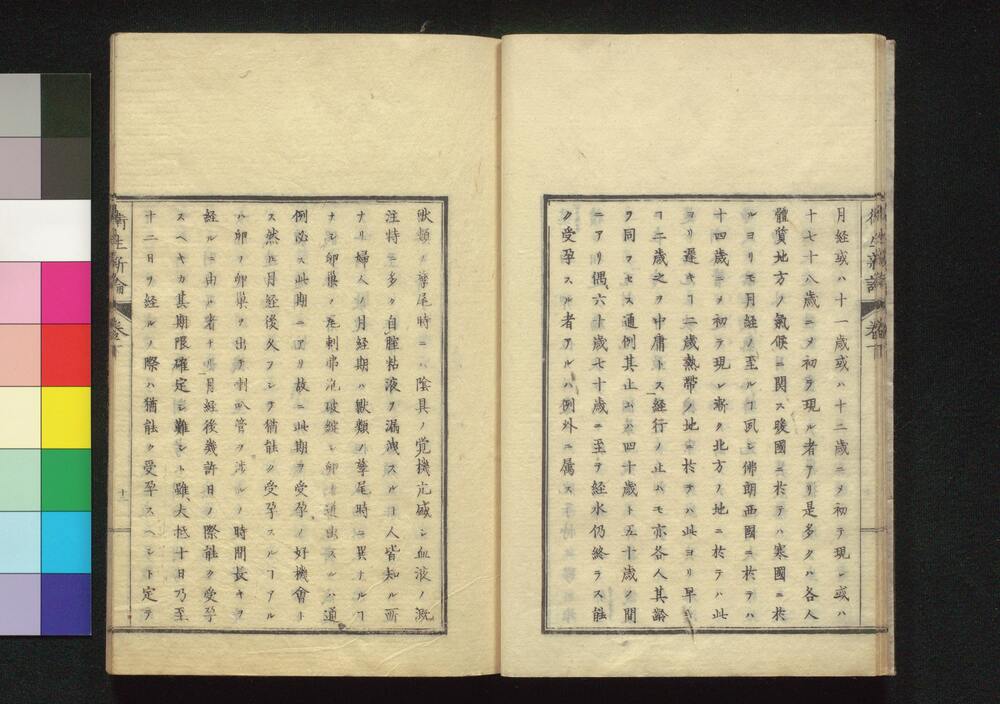 月経或ハ十一歳或ハ十二歳ニメ初テ現レ或ハ
十七十八歳ニメ初テ現ル者アリ是多クハ各人
體質地方ノ氣候ニ関ス暖國ニ於テハ寒國ニ於
ルヨリモ月経ノ至ルヿ夙シ佛朗西國ニ於テハ
十四歳ニメ初テ現レ漸ク北方ノ地ニ於テハ此
ヨリ遅キヿ二歳熱帶ノ地ニ於テハ此ヨリ早キ
ヿ二歳之ヲ中庸トス経行ノ止ムモ亦各人其齡
ヲ同フセス通例其止ムハ四十歳ト五十歳ノ間
ニアリ偶六十歳七十歳ニ至テ経水仍終ラス能
ク受孕スル者アルハ例外ニ属ス
獣類ノ孳尾時ニハ陰具ノ覚機亢盛シ血液ノ溉
注特ニ多ク自腟粘液ヲ漏洩スルヿ人皆知ル所
ナリ婦人ノ月経期ハ獣類ノ孳尾時ニ異ナルヿ
ナシ卵巢ノ尼刺弗泡破綻シ卵ノ迸出スルハ通
例必ス此期ニアリ故ニ此期ヲ受孕ノ好機會ト
ス然𪜈月経後久フシテ猶能ク受孕スルヿアル
ハ卵ノ卵巢ヲ出テ喇叭管ヲ渉ルノ時間長キヲ
経ルニ由ル者ナリ月経後幾許日ノ際能ク受孕
スヘキカ其期限確定シ難シト雖大抵十日乃至
十二日ヲ経ルノ際ハ猶能ク受孕スヘシト定テ
衛生新論
卷一
十一